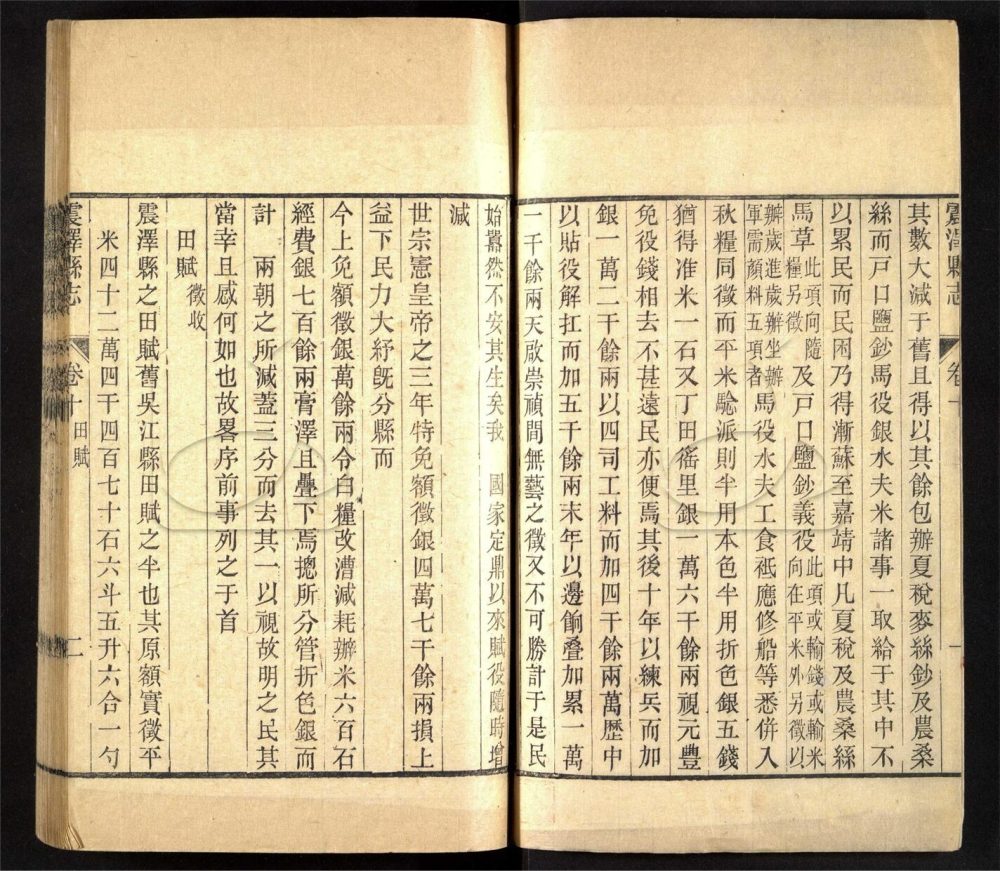 震澤縣志　卷十　一
其數大減于舊且得以其餘包辦夏稅麥絲鈔及農桑
絲而戸口鹽鈔馬役銀水夫米諸事一取給于其中不
以累民而民困乃得漸蘇至嘉靖中凡夏稅及農桑絲
馬草此項向隨糧另徵及戸口鹽鈔義役此項或輸錢或輸米向在平米外另徵以
辦歲進歲辦坐辦軍需顔料五項者馬役水夫工食祗應修船等悉併入
秋糧同徵而平米驗派則半用本色半用折色銀五錢
猶得准米一石又丁田徭里銀一萬六千餘兩視元豐
免役錢相去不甚遠民亦便焉其後十年以練兵而加
銀一萬二千餘兩以四司工料而加四千餘兩萬歷中
以貼役解扛而加五千餘兩末年以邊餉叠加累一萬
一千餘兩天啟崇禎間無藝之徵又不可勝計于是民
始囂然不安其生矣我　國家定鼎以來賦役隨時增
減
世宗憲皇帝之三年特免額徵銀四萬七千餘兩損上
益下民力大紓旣分縣而
今上免額徵銀萬餘兩令白糧改漕減耗辦米六百石
經費銀七百餘兩膏澤且疊下焉摠所分管折色銀而
計　兩朝之所減蓋三分而去其一以視故明之民其
當幸且感何如也故畧序前事列之于首
田賦　徵收
震澤縣之田賦舊吳江縣田賦之半也其原額實徵平
米四十二萬四千四百七十石六斗五升六合一勺
震澤縣志　卷十　田賦　二